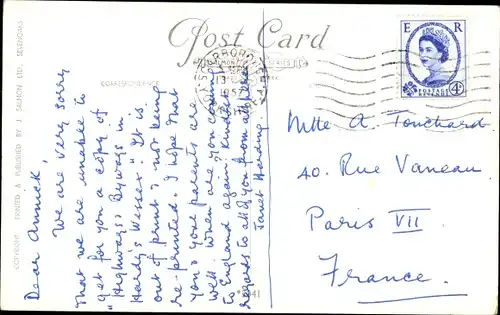 COPYRIGHT PRINTED & PUBLISHED BY J. SALMON LTD. SEVENOAKS
Post Card
CORRESPONDENCE
Dear Annick,
We are very sorry
that we are unable to
get for you a copy of
"Highways & Byways in
Hardy's Wessex". It is
out of print & not being
re-printed. I hope that
you & your parents are
well. When are you coming
to England again? Kindest
regards to all of you from all of us here
Janet Harding
E R
POSTAGE
REVENUE
4D
SCARBOROUGH
1957
Mlle A. Touchard
40. Rue Vaneau.
Paris VII.
France.